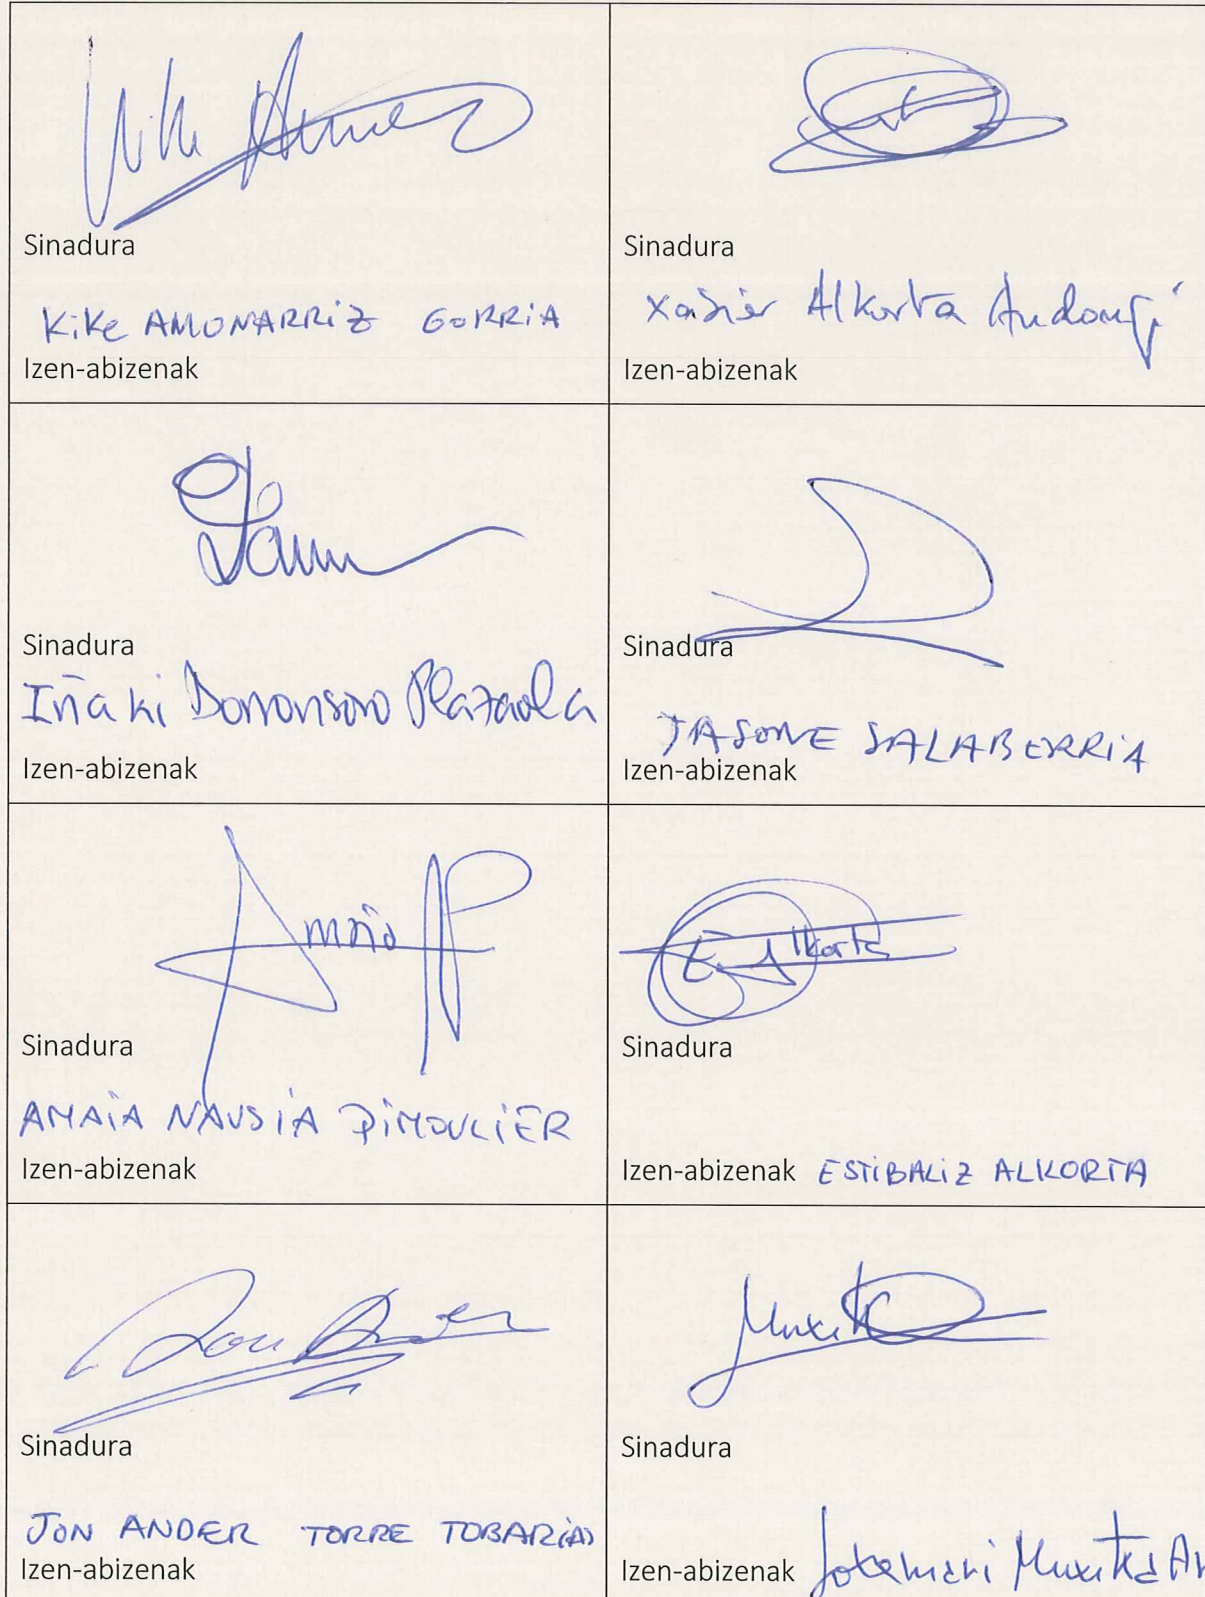 Sinadura
Kike AMONARRIZ GORRIA
Izen-abizenak
Sinadura
Xabier Alkorta
Izen-abizenak
Sinadura
Iñaki Dorronsoro Plazaola
Izen-abizenak
Sinadura
JASONE SALABERRIA
Izen-abizenak
Amaia
Sinadura
AMAIA NAUSIA PIMOULIER
Izen-abizenak
E. Alkorta
Sinadura
Izen-abizenak ESTIBALIZ ALKORTA
Jon Ander
Sinadura
JON ANDER TORRE TOBARIAS
Izen-abizenak
Sinadura
Izen-abizenak